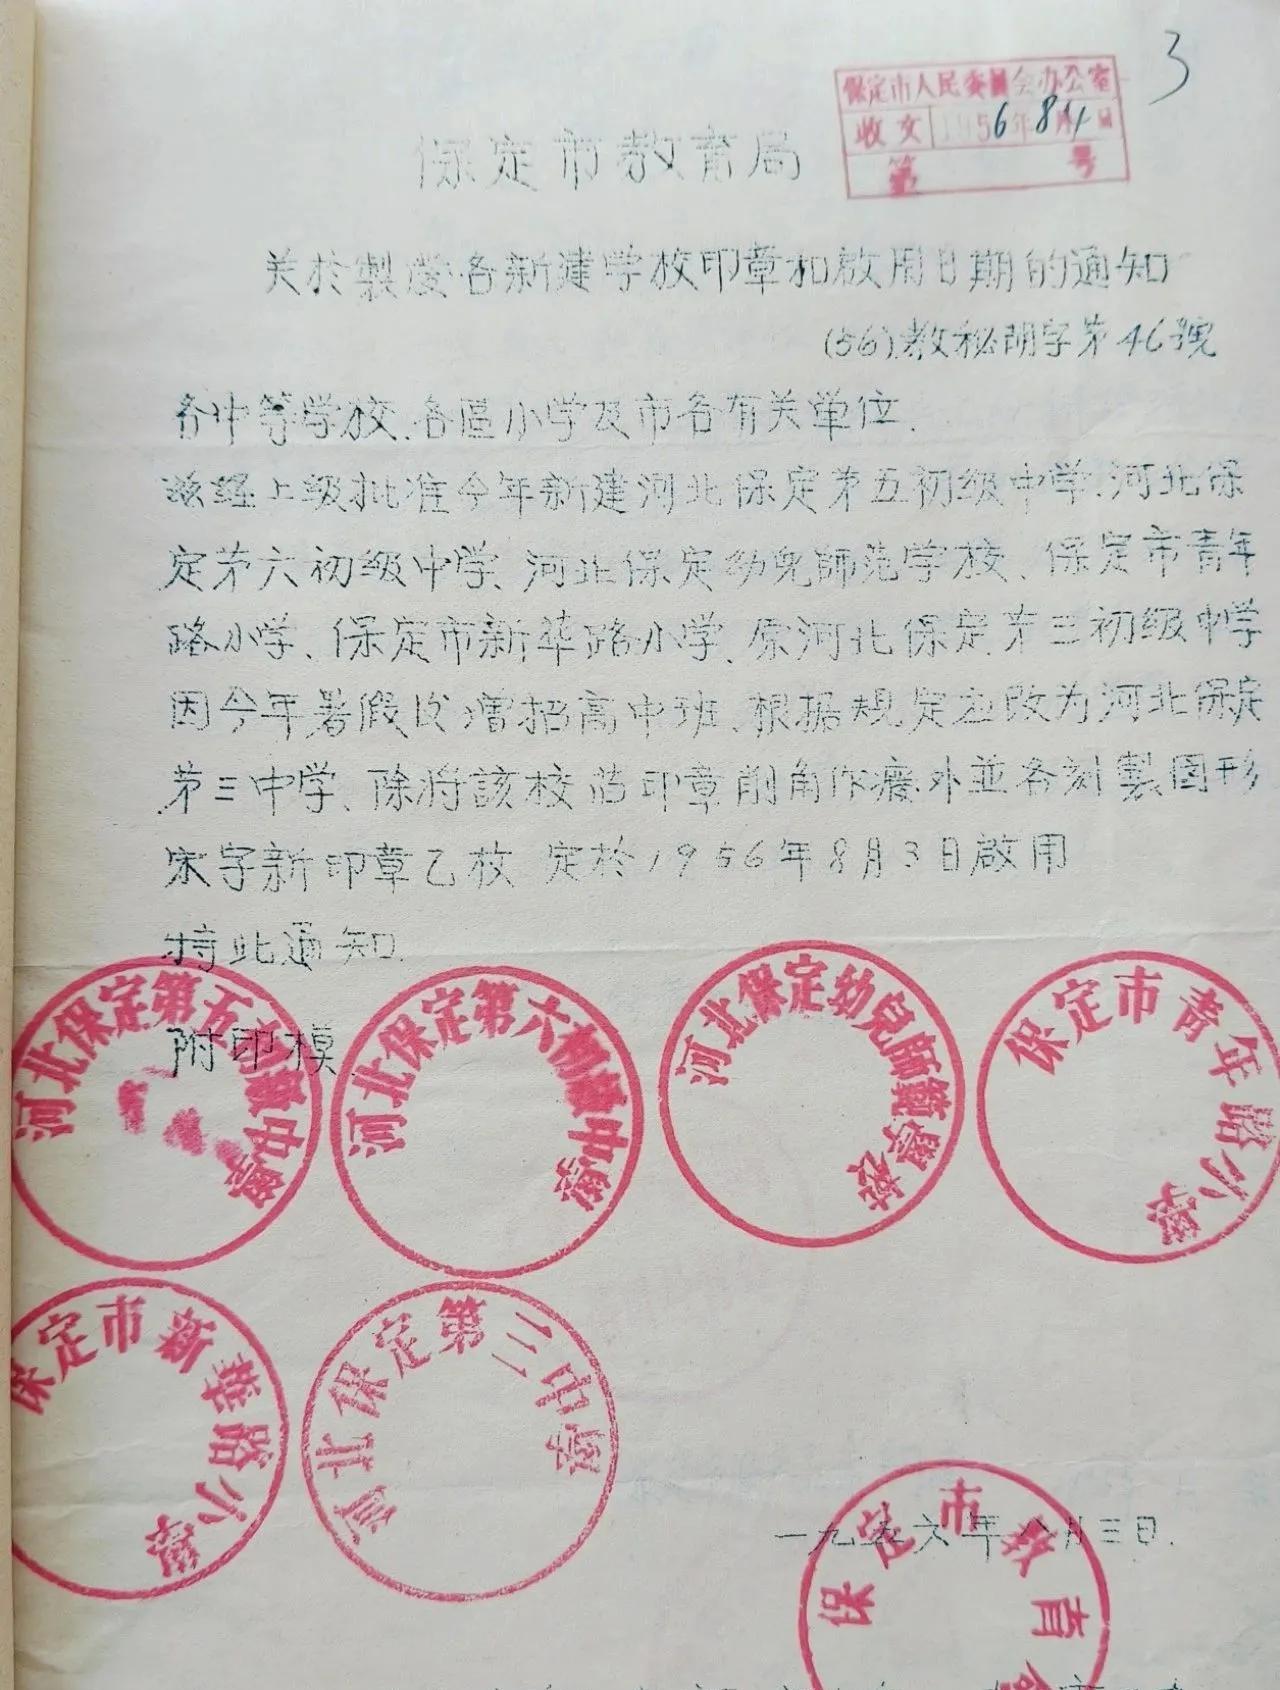 3
保定市人民委員会办公室
收文 1956年8月4日
第 号
保定市教育局
关於製發各新建学校印章和啟用日期的通知
(56)教秘胡字第46號
各中等学校、各區小学及市各有关单位.
兹经上级批准今年新建河北保定第五初级中学、河北保
定第六初级中学、河北保定幼兒師范学校、保定市青年
路小学、保定市新华路小学、原河北保定第三初级中学
因今年暑假后增招高中班、根据规定应改为河北保定
第三中学、除将該校旧印章削角作廢外並各刻製圆形
宋字新印章乙枚 定於1956年8月3日啟用
特此通知.
附印模.
河北保定第五初級中學
河北保定第六初級中學
河北保定幼兒師範學校
保定市青年路小學
保定市新華路小學
河北保定第三中學
一九五六年八月三日.
保定市教育局